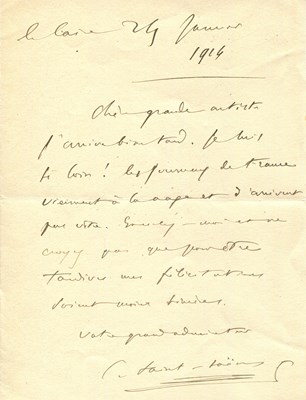 le Caire 24 Janvier
1914
Chère grande artiste
j'arrive bien tard. Je suis
si loin ! les journaux de France
viennent à la nage et n'arrivent
pas vite. Excusez-moi et ne
croyez pas que pour être
tardives mes félicitations
soient moins sincères.
votre grand admirateur
C. Saint-Saëns